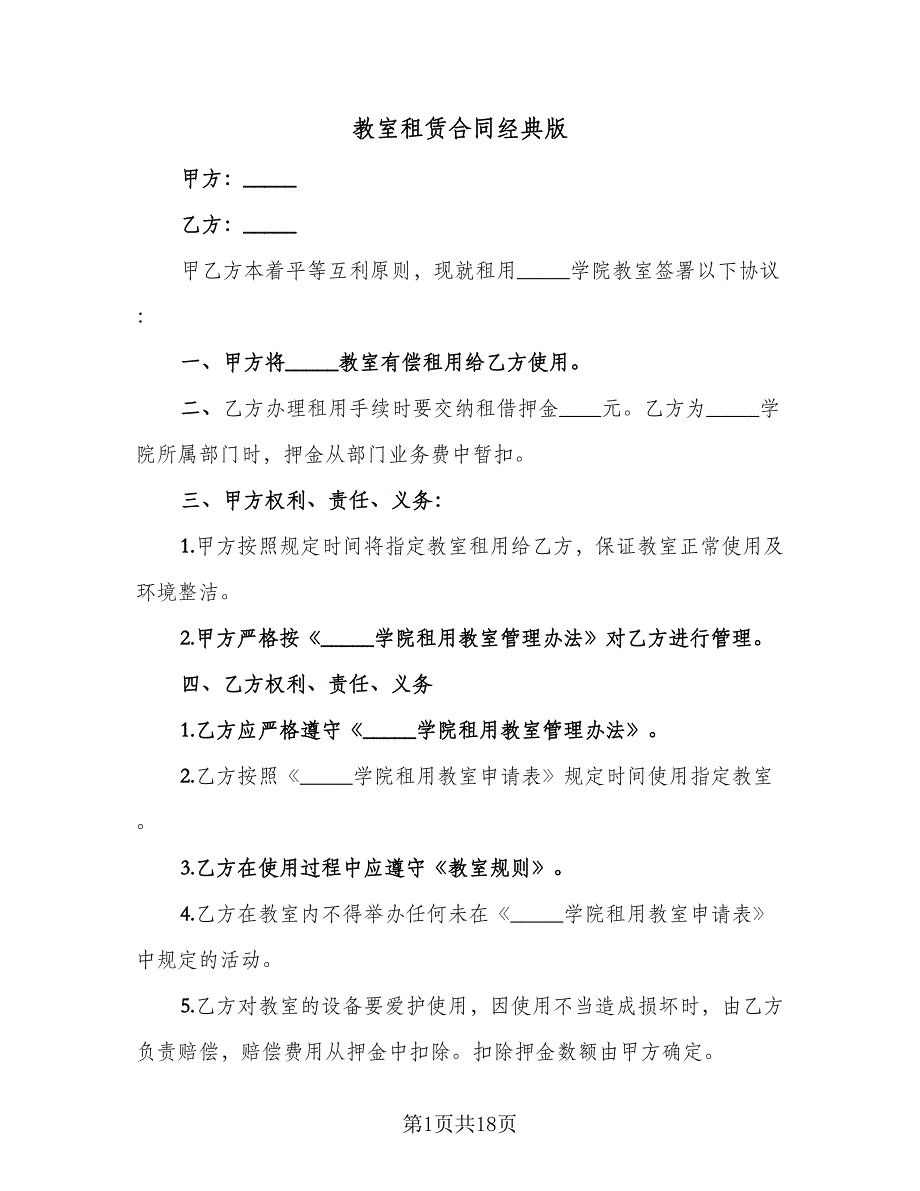 教室租赁合同经典版
甲方：_____
乙方：_____
甲乙方本着平等互利原则，现就租用_____学院教室签署以下协议
：
一、甲方将_____教室有偿租用给乙方使用。
二、乙方办理租用手续时要交纳租借押金____元。乙方为_____学
院所属部门时，押金从部门业务费中暂扣。
三、甲方权利、责任、义务：
1.甲方按照规定时间将指定教室租用给乙方，保证教室正常使用及
环境整洁。
2.甲方严格按《_____学院租用教室管理办法》对乙方进行管理。
四、乙方权利、责任、义务
1.乙方应严格遵守《_____学院租用教室管理办法》。
2.乙方按照《_____学院租用教室申请表》规定时间使用指定教室
。
3.乙方在使用过程中应遵守《教室规则》。
4.乙方在教室内不得举办任何未在《_____学院租用教室申请表》
中规定的活动。
5.乙方对教室的设备要爱护使用，因使用不当造成损坏时，由乙方
负责赔偿，赔偿费用从押金中扣除。扣除押金数额由甲方确定。
第1页共18页